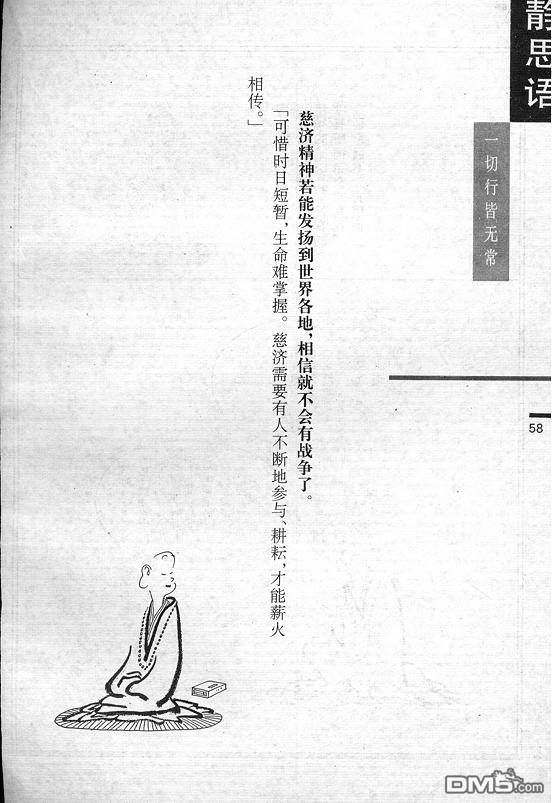 静思语
一切行皆无常
58
慈济精神若能发扬到世界各地，相信就不会有战争了。
「可惜时日短暂，生命难掌握。慈济需要有人不断地参与、耕耘，才能薪火
相传。」
DM5.com